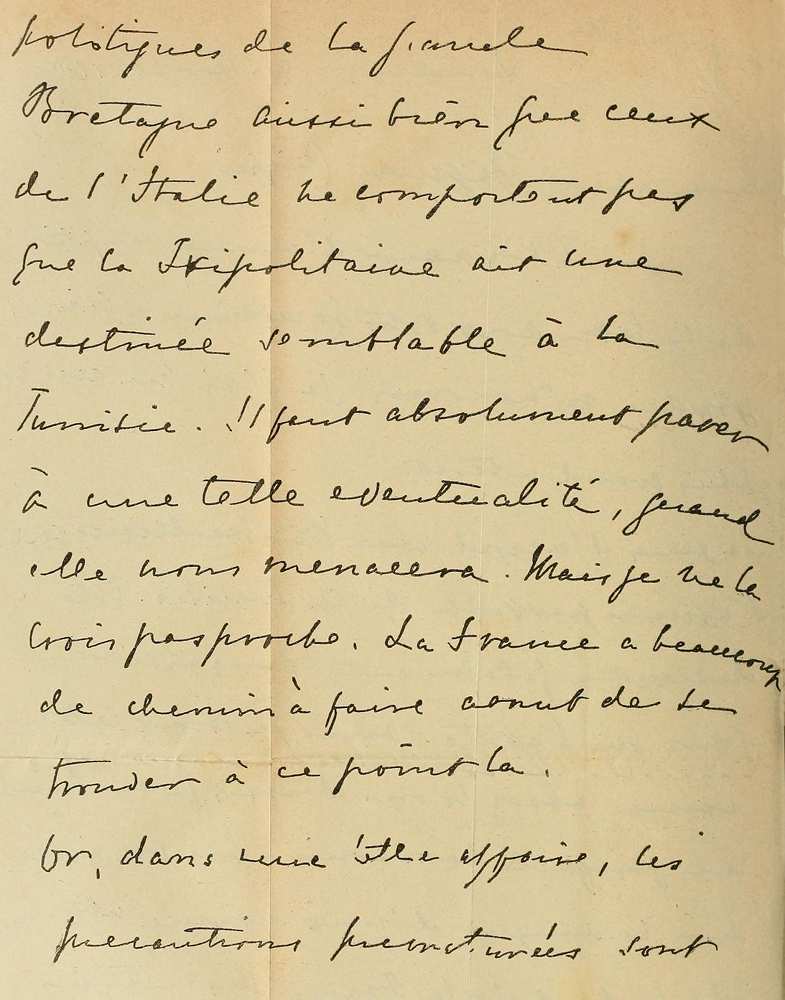 politiques de la grande
Bretagne aussi bien que ceux
de l'Italie ne comportent pas
que la Tripolitaine ait une
destinée semblable à la
Tunisie. Il faut absolument parer
à une telle eventualité, quand
elle nous menacera. Mais je ne la
crois pas proche. La France a beaucoup
de chemin à faire avant de se
trouver à ce point la.
Or, dans une telle affaire, les
precautions prematurées sont